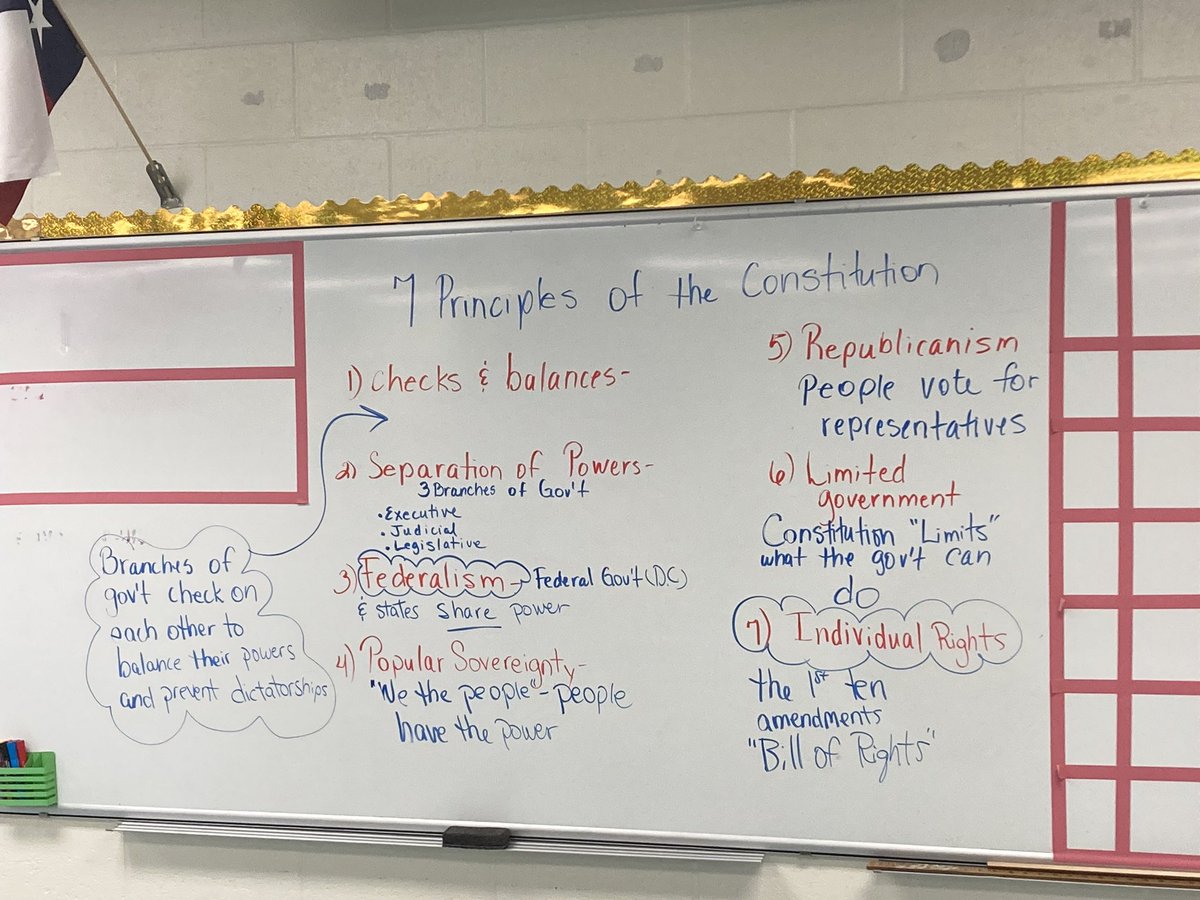 7 Principles of the Constitution
1) checks & balances-
Branches of
gov't check on
each other to
balance their powers
and prevent dictatorships
2) Separation of Powers-
3 Branches of Gov't
• Executive
• Judicial
• Legislative
3) Federalism - Federal Gov't (D.C)
& states share power
4) Popular Sovereignty-
"We the people" - people
have the power
5) Republicanism
People vote for
representatives
6) Limited
government
Constitution "Limits"
what the gov't can
do
7) Individual Rights
the 1st ten
amendments
"Bill of Rights"